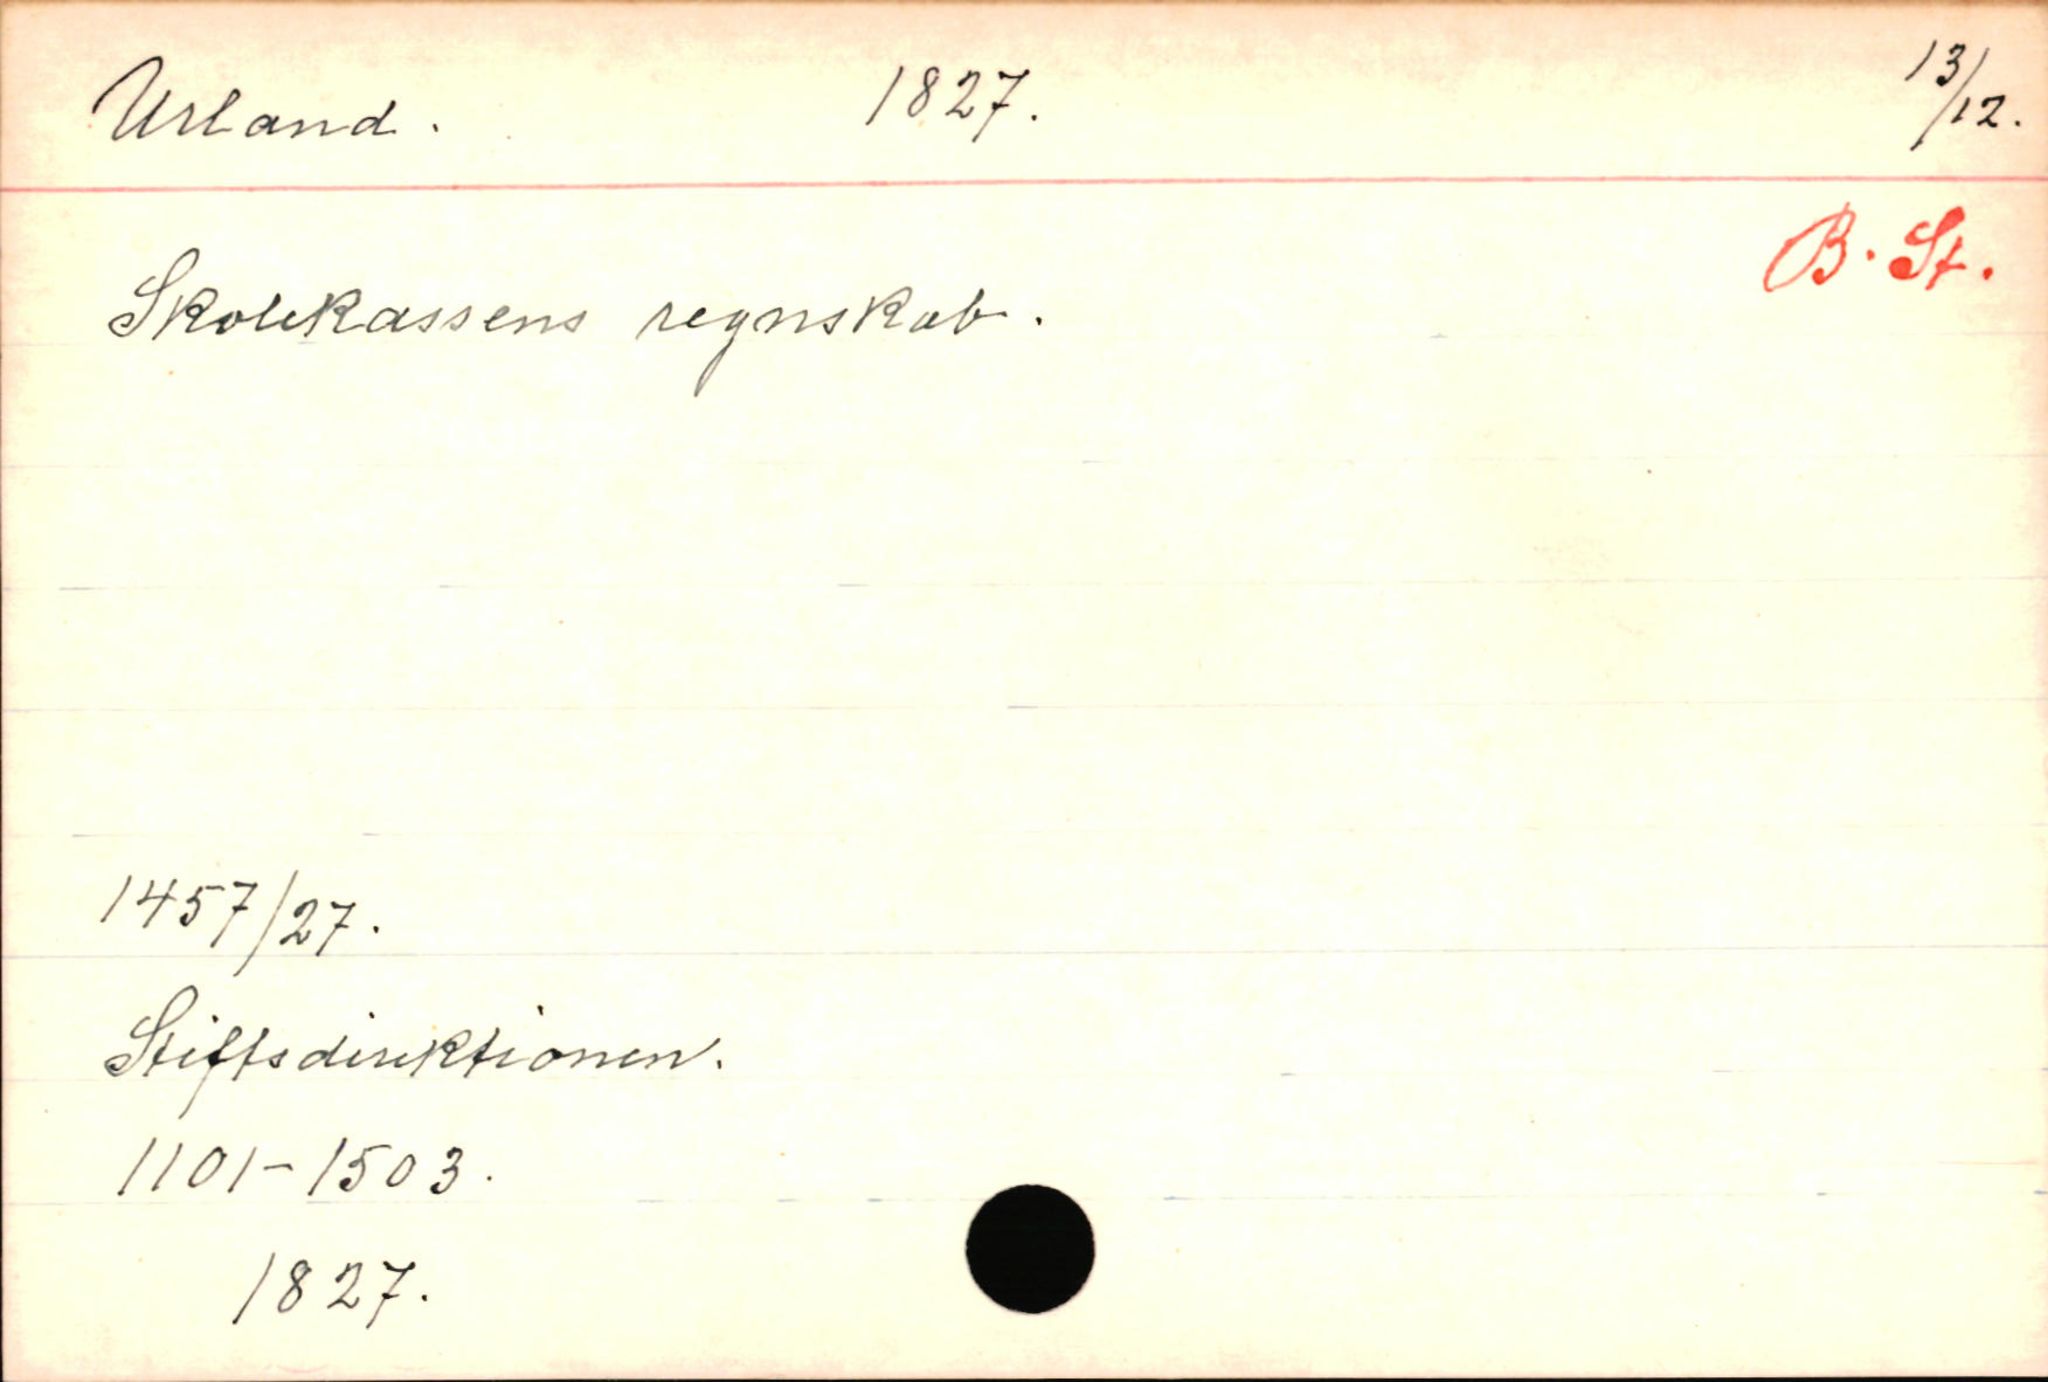 Urland. 1827. 13/12.
B. St.
Skolekassens regnskab.
1457/27.
Stiftsdirektionen.
1101-1503.
1827.